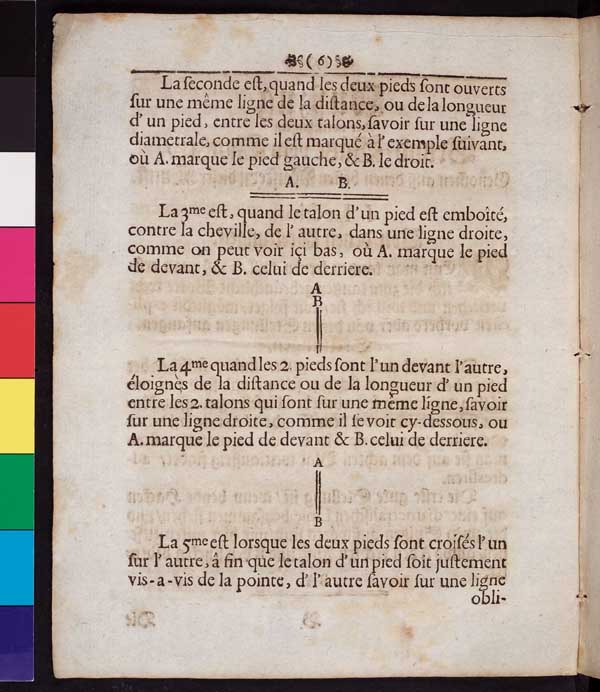 ( 6 )
La seconde est, quand les deux pieds sont ouverts
sur une même ligne de la distance, ou de la longueur
d' un pied, entre les deux talons, savoir sur une ligne
diametrale, comme il est marqué à l' exemple suivant,
où A. marque le pied gauche, & B. le droit.
A. B.
La 3me est, quand le talon d'un pied est emboîté,
contre la cheville, de l' autre, dans une ligne droite,
comme on peut voir içi bas, où A. marque le pied
de devant, & B. celui de derriere.
A
B
La 4me quand les 2. pieds sont l'un devant l'autre,
éloignés de la distance ou de la longueur d' un pied
entre les 2. talons qui sont sur une même ligne, savoir
sur une ligne droite, comme il se voir cy-dessous, ou
A. marque le pied de devant & B. celui de derriere.
A
B
La 5me est lorsque les deux pieds sont croisés l'un
sur l' autre, â fin que le talon d'un pied soit justement
vis-a-vis de la pointe, d' l' autre savoir sur une ligne
obli-